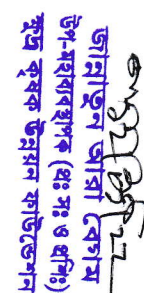 জান্নাতুন আরা বেগম
উপ-মহাব্যবস্থাপক (প্রঃ সঃ ও প্রশিঃ)
ক্ষুদ্র কৃষক উন্নয়ন ফাউন্ডেশন